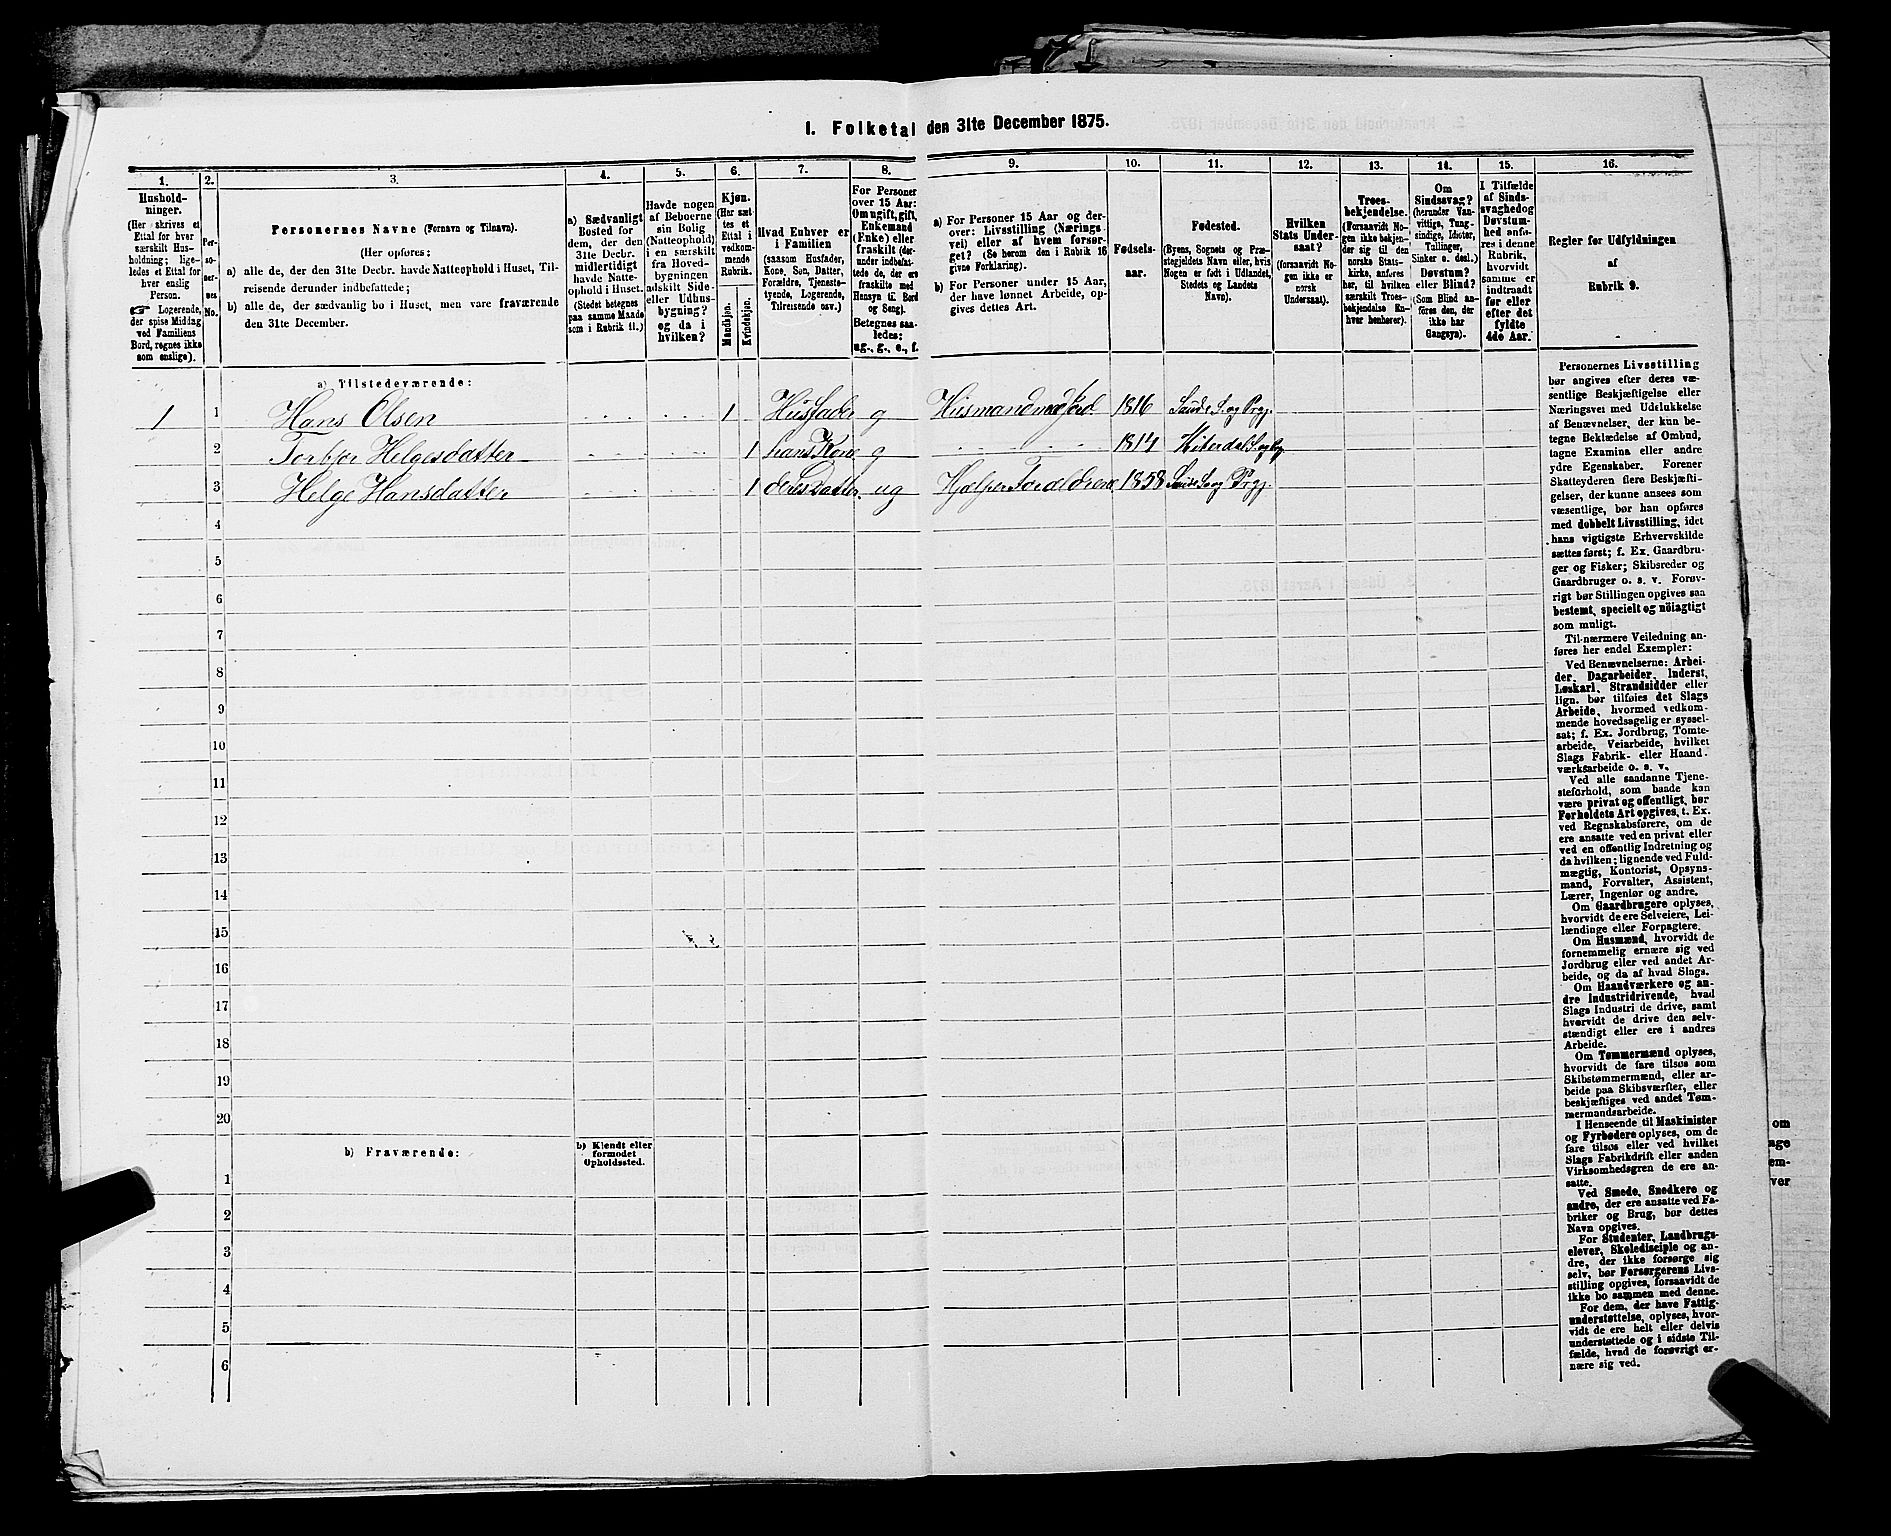 I. Folketal den 31te December 1875.
1.
Hushold-
ninger.
(Her skrives et
Ettal for hver
særskilt Hus-
holdning; lige-
ledes et Ettal for
hver enslig
Person.
☞ Logerende,
der spise Middag
ved Familiens
Bord, regnes ikke
som enslige).
2.
Per-
so-
ner-
nes
No.
3.
Personernes Navne (Fornavn og Tilnavn).
(Her opføres:
a) alle de, der den 31te Decbr. havde Natteophold i Huset, Til-
reisende derunder indbefattede;
b) alle de, der sædvanlig bo i Huset, men vare fraværende
den 31te December.
4.
a) Sædvanligt
Bosted for
dem, der den
31te Decbr.
midlertidigt
havde Natte-
ophold i Huset.
(Stedet betegnes
paa samme Maade
som i Rubrik 11.)
5.
Havde nogen
af Beboerne
sin Bolig
(Natteophold)
i en særskilt
fra Hoved-
bygningen
adskilt Side-
eller Udhus-
bygning?
og da i
hvilken?
6.
Kjøn.
(Her sæt-
tes et
Ettal i
vedkom-
mende
Rubrik.
Mandkjøn.
Kvindekjøn.
7.
Hvad Enhver er
i Familien
(saasom Husfader,
Kone, Søn, Datter,
Forældre, Tjeneste-
tyende, Logerende,
Tilreisende osv.)
8.
For Personer
over 15 Aar:
Om ugift, gift,
Enkemand
(Enke) eller
fraskilt (der-
under indbefat-
tede de, der ere
fraskilte med
Hensyn til Bord
og Seng).
Betegnes saa-
ledes:
ug., g., e., f.
9.
a) For Personer 15 Aar og der-
over: Livsstilling (Nærings-
vei) eller af hvem forsør-
get? (Se herom den i Rubrik 16
givne Forklaring).
b) For Personer under 15 Aar,
der have lønnet Arbeide, op-
gives dettes Art.
10.
Fødsels-
aar.
11.
Fødested.
(Byens, Sognets og Præ-
stegjeldets Navn eller, hvis
Nogen er født i Udlandet,
Stedets og Landets
Navn).
12.
Hvilken
Stats Under-
saat?
(forsaavidt No-
gen ikke er
norsk
Undersaat).
13.
Troes-
bekjendelse.
(Forsaavidt No-
gen ikke bekjen-
der sig til den
norske Stats-
kirke, anføres
her, til hvilken
særskilt Troes-
bekjendelse En-
hver henhører).
14.
Om
Sindssvag?
(herunder Van-
vittige, Tung-
sindige, Idioter,
Tullinger,
Sinker o. desl.)
Døvstum?
eller Blind?
(Som Blind an-
føres den, der
ikke har
Gangsyn).
15.
I Tilfælde
af Sinds-
svaghed og
Døvstum-
hed anfø-
res i denne
Rubrik,
hvorvidt
samme er
indtraadt
før eller
efter det
fyldte
4de Aar.
16.
Regler før Udfyldningen
af
Rubrik 9.
a) Tilstedeværende:
1 1 Hans Olsen 1 Husfader g Husmand med Jord 1816 Saude S. og Prgj.
2 Torbjør Helgesdatter 1 hans Kone g 1817 Hiterdal S. og Prg.
3 Helge Hansdatter 1 deres Datter ug Hjælper Forældrene 1858 Saude S. og Prgj.
4
5
6
7
8
9
10
11
12
13
14
15
16
17
18
19
20
b) Fraværende:
b) Kjendt eller
formodet
Opholdssted.
1
2
3
4
5
6
Personernes Livsstilling
bør angives efter deres væ-
sentlige Beskjæftigelse eller
Næringsvei med Udelukkelse
af Benævnelser, der kun be-
tegne Beklædelse af Ombud,
tagne Examina eller andre
ydre Egenskaber. Forener
Skatteyderen flere Beskjæfti-
gelser, der kunne ansees som
væsentlige, bør han opføres
med dobbelt Livsstilling, idet
hans vigtigste Erhvervskilde
sættes først; f. Ex. Gaardbru-
ger og Fisker; Skibsreder og
Gaardbruger o. s. v. Forøv-
rigt bør Stillingen opgives saa
bestemt, specielt og nöiagtigt
som muligt.
Til nærmere Veiledning an-
føres her endel Exempler:
Ved Benævnelserne: Arbei-
der, Dagarbeider, Inderst,
Løskarl, Strandsidder eller
lign. bør tilføies det Slags
Arbeide, hvormed vedkom-
mende hovedsagelig er syssel-
sat; f. Ex. Jordbrug, Tomte-
arbeide, Veiarbeide, hvilket
Slags Fabrik- eller Haand-
værksarbeide o. s. v.
Ved alle saadanne Tjene-
steforhold, som baade kan
være privat og offentligt, bør
Forholdets Art opgives, t. Ex.
ved Regnskabsførere, om de
ere ansatte ved en privat eller
ved en offentlig Indretning og
da hvilken; lignende ved Fuld-
mægtig, Kontorist, Opsyns-
mand, Forvalter, Assistent,
Lærer, Ingeniør og andre.
Om Gaardbrugere oplyses,
hvorvidt de ere Selveiere, Lei-
lændinge eller Forpagtere.
Om Husmænd, hvorvidt de
fornemmelig ernære sig ved
Jordbrug eller ved andet Ar-
beide, og da af hvad Slags.
Om Haandværkere og an-
dre Industridrivende, hvad
Slags Industri de drive, samt
hvorvidt de drive den selv-
stændigt eller ere i andres
Arbeide.
Om Tømmermænd oplyses,
hvorvidt de fare tilsøs som
Skibstømmermænd, eller ar-
beide paa Skibsværfter, eller
beskjæftiges ved andet Tøm-
mermandsarbeide.
I Henseende til Maskinister
og Fyrbødere oplyses, om de
fare tilsøs eller ved hvilket
Slags Fabrikdrift eller anden
Virksomhedsgren de ere an-
satte.
Ved Smede, Snedkere og
andre, der ere ansatte ved Fa-
briker og Brug, bør dettes
Navn opgives.
For Studenter, Landbrugs-
elever, Skoledisciple og an-
dre, der ikke forsørge sig
selv, bør Forsørgerens Livs-
stilling opgives, forsaavidt de
ikke bo sammen med denne.
For dem, der have Fattig-
understøttelse, oplyses, hvor-
vidt de ere helt eller delvis
understøttede og i sidste Til-
fælde, hvad de forøvrigt er-
nære sig ved.